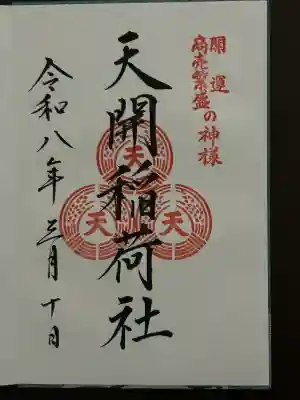 開運
商売繁盛の神様
天開稲荷社
天
天
天
令和八年三月十日